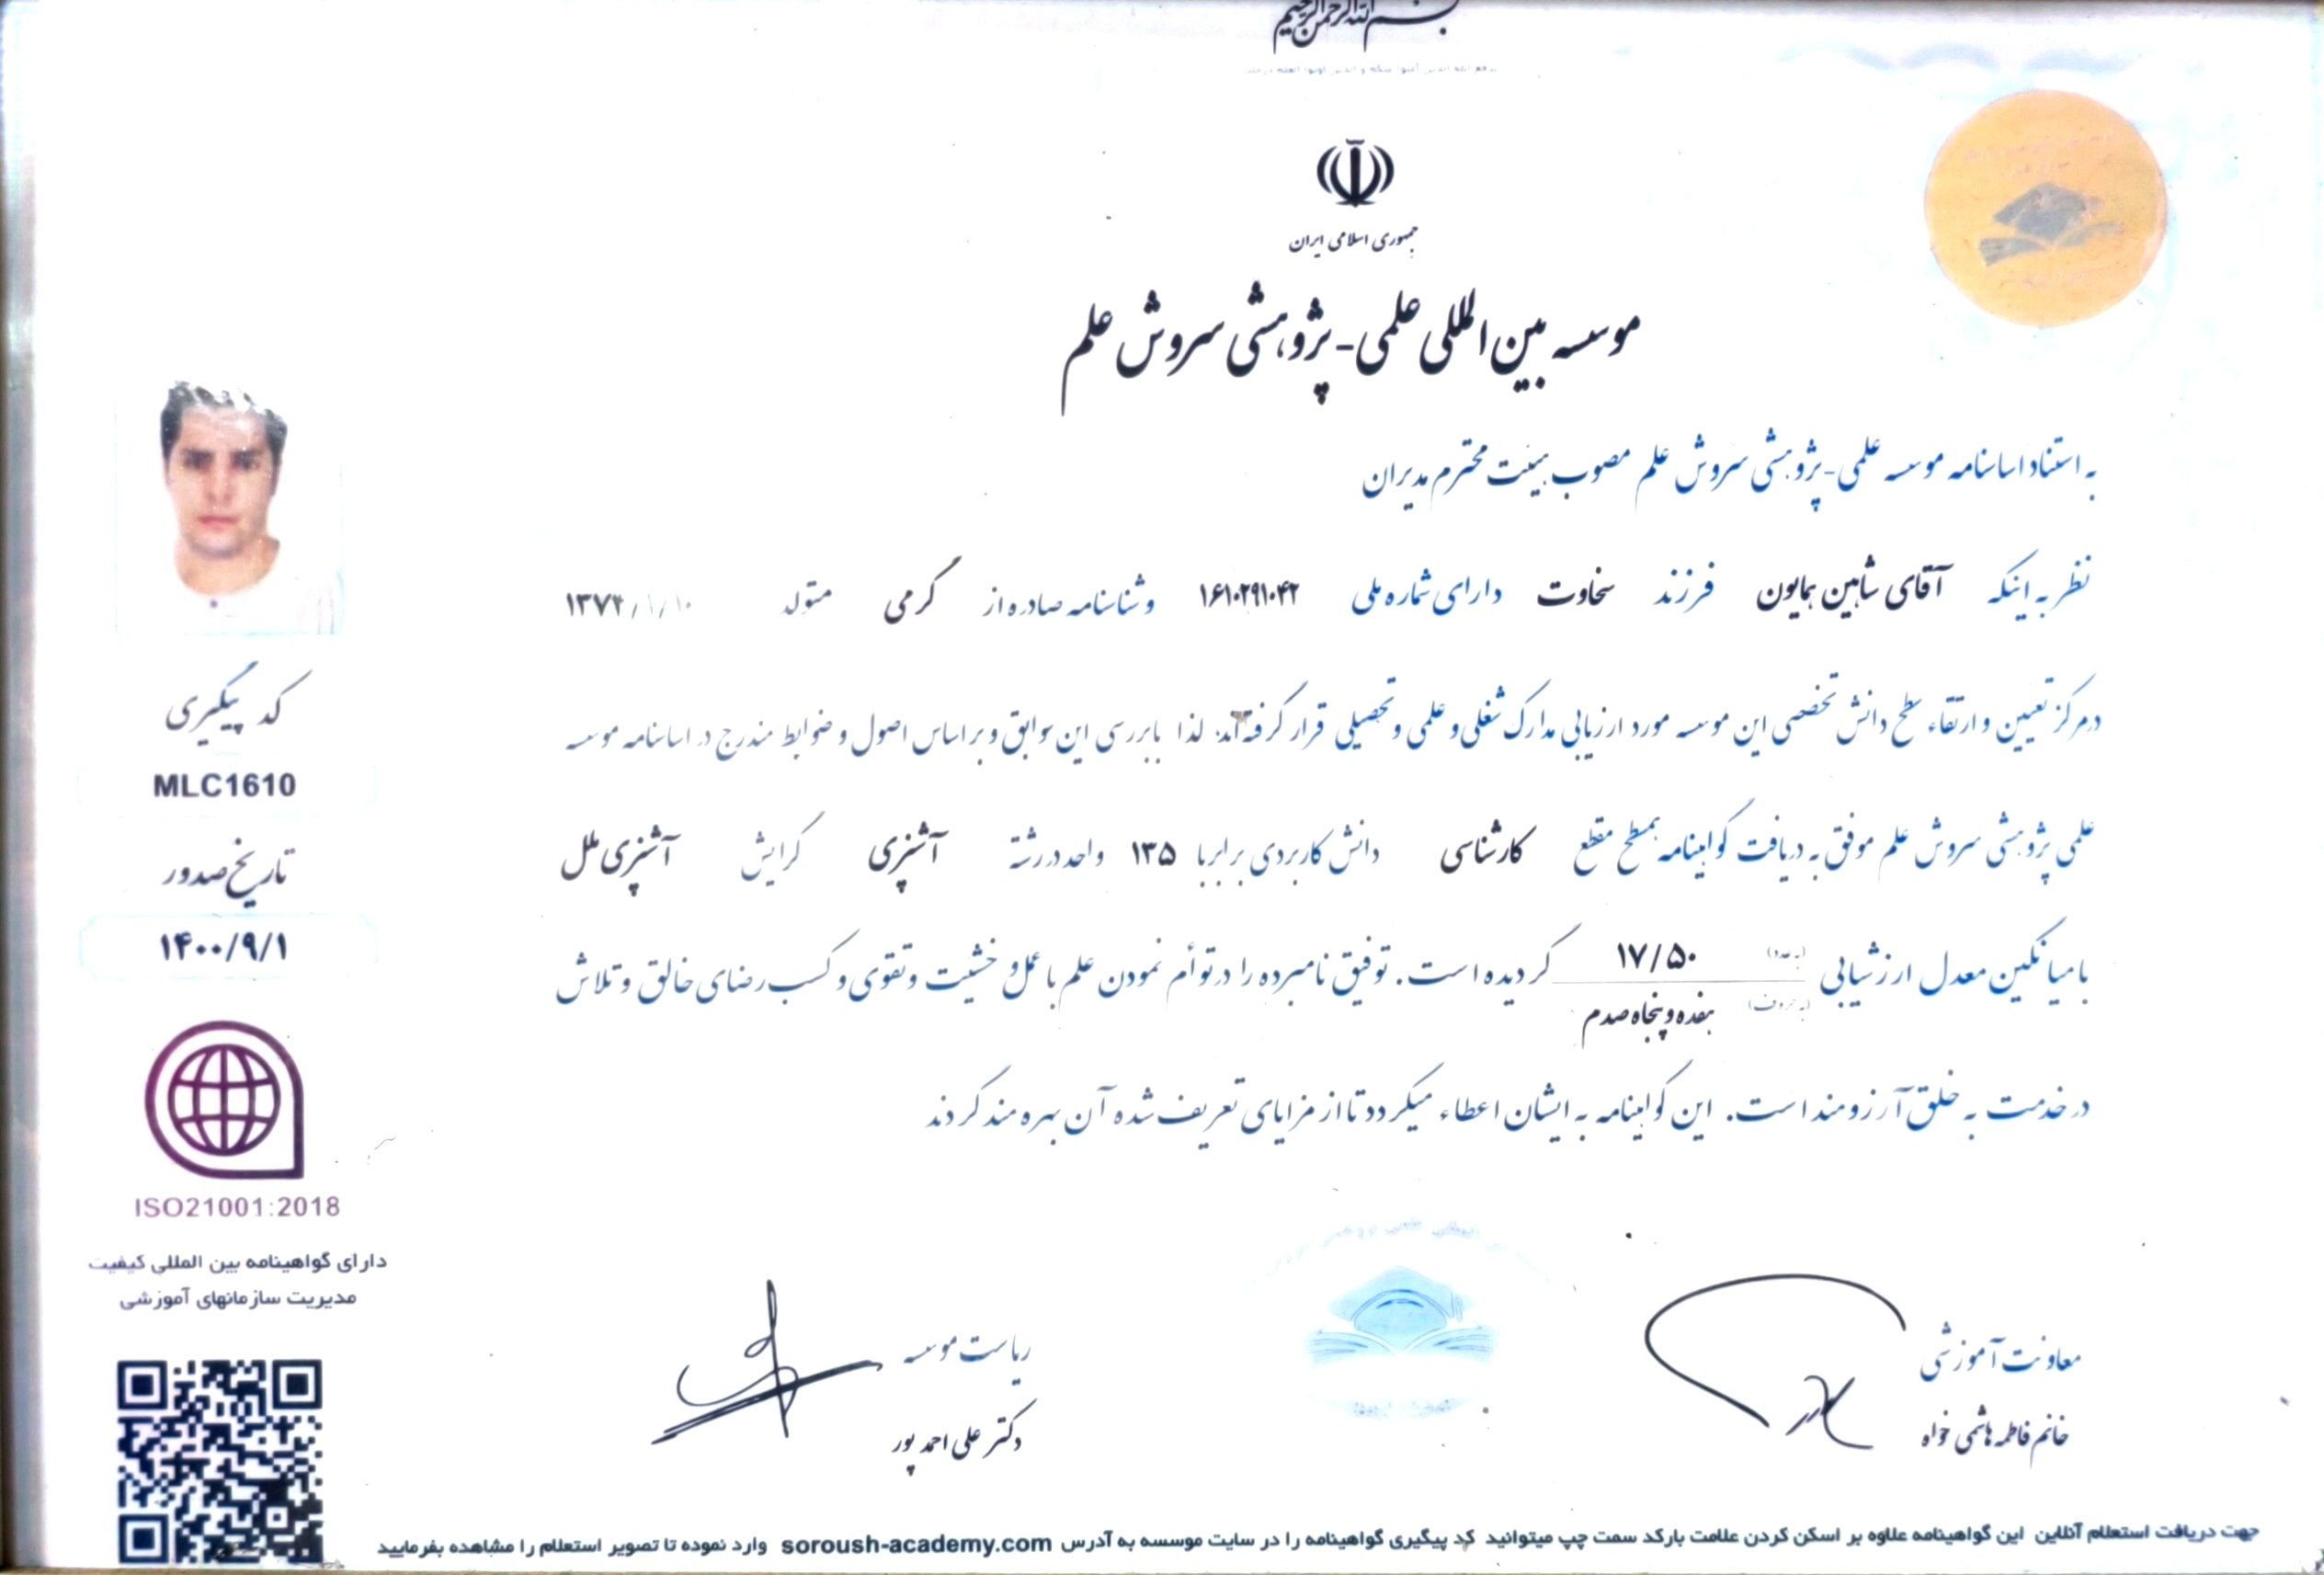 بسم الله الرحمن الرحیم
جمهوری اسلامی ایران
موسسه بین المللی علمی-پژوهشی سروش علم
به استناد اساسنامه موسسه علمی-پژوهشی سروش علم مصوب هیئت محترم مدیران
نظر به اینکه آقای شاهین همایون فرزند سخاوت دارای شماره ملی ۱۶۱۰۲۹۱۰۴۲ و شناسنامه صادره از گرمی متولد ۱۳۷۴/۱/۱۰
در مرکز تعیین و ارتقاء سطح دانش تخصصی این موسسه مورد ارزیابی مدارک شغلی و علمی و تحصیلی قرار گرفته‌اند. لذا با بررسی این سوابق و بر اساس اصول و ضوابط مندرج در اساسنامه موسسه
علمی پژوهشی سروش علم موفق به دریافت گواهینامه همسطح مقطع کارشناسی دانش کاربردی برابر با ۱۳۵ واحد در رشته آشپزی گرایش آشپزی ملل
با میانگین معدل ارزشیابی (به عدد) ۱۷/۵۰ (به حروف) هفده و پنجاه صدم گردیده است. توفیق نامبرده را در توأم نمودن علم با عمل و خشیت و تقوی و کسب رضای خالق و تلاش
در خدمت به خلق آرزومند است. این گواهینامه به ایشان اعطاء میگردد تا از مزایای تعریف شده آن بهره مند گردند
کد پیگیری
MLC1610
تاریخ صدور
۱۴۰۰/۹/۱
ISO21001:2018
دارای گواهینامه بین المللی کیفیت
مدیریت سازمانهای آموزشی
معاونت آموزشی
خانم فاطمه هاشمی خواه
ریاست موسسه
دکتر علی احمد پور
جهت دریافت استعلام آنلاین این گواهینامه علاوه بر اسکن کردن علامت بارکد سمت چپ میتوانید کد پیگیری گواهینامه را در سایت موسسه به آدرس soroush-academy.com وارد نموده تا تصویر استعلام را مشاهده بفرمایید